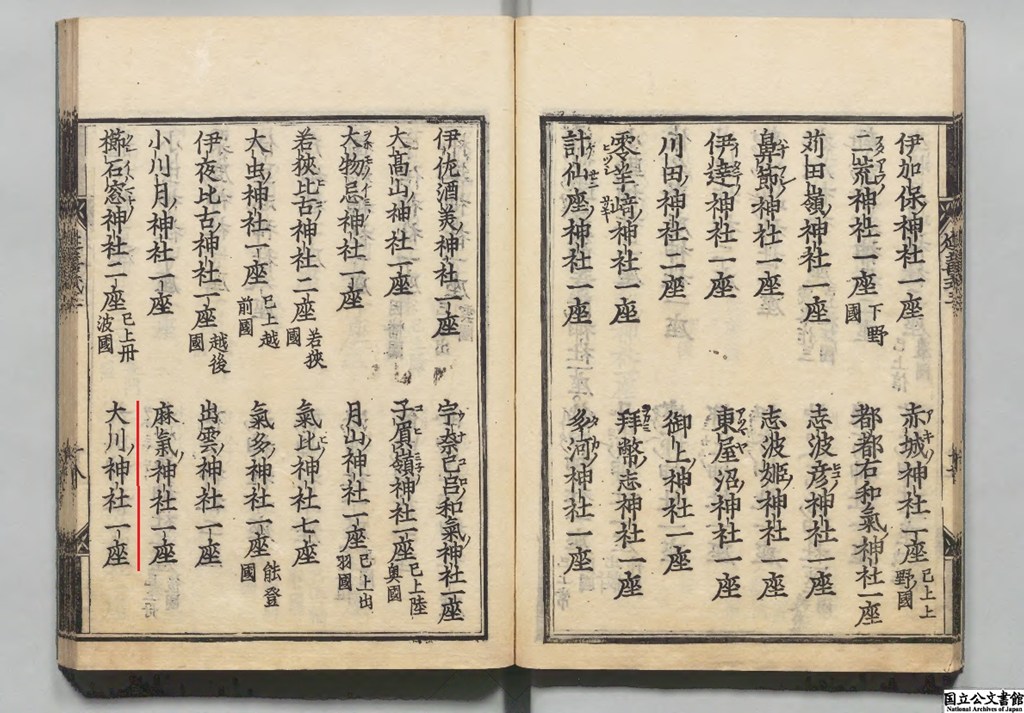 伊加保神社一座　赤城神社一座 已上上野國
二荒神社一座 下野國　都都右和氣神社一座
苅田嶺神社一座　志波彦神社一座
鼻節神社一座　志波姬神社一座
伊達神社一座　東屋沼神社一座
川田神社二座　御上神社一座
零羊﨑神社一座　拜幣志神社一座
計仙座神社一座　多河神社一座
伊佐酒美神社一座　宇奈己呂和氣神社一座
大髙山神社一座　子眉嶺神社一座 已上陸奥國
大物忌神社一座　月山神社一座 已上出羽國
若狹比古神社二座 若狹國　氣比神社七座
大虫神社一座 已上越前國　氣多神社一座 能登國
伊夜比古神社一座 越後國　出雲神社一座
小川月神社一座　麻氣神社一座
櫛石窓神社二座 已上丹波國　大川神社一座
国立公文書館
National Archives of Japan